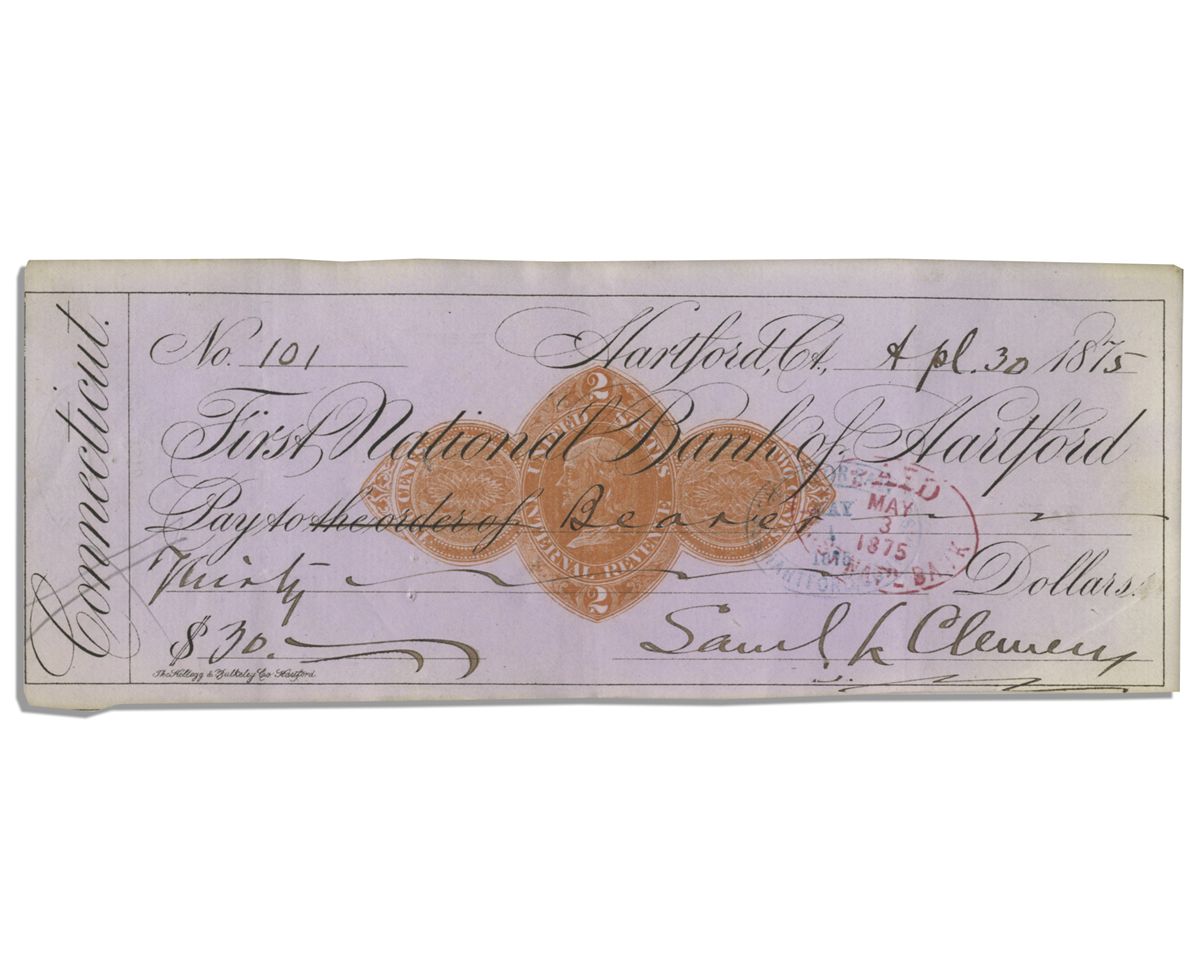 Connecticut.
No. 101 Hartford, Ct., Apl. 30 1875
First National Bank of Hartford
Pay to the order of Bearer
Thirty Dollars.
$30.
Saml. L Clemens
The Kellogg & Bulkeley Co Hartford
2
UNITED STATES
INTERNAL REVENUE
2
PAID
MAY
3
1875
NAT'L BANK
MAY
1
HARTFORD